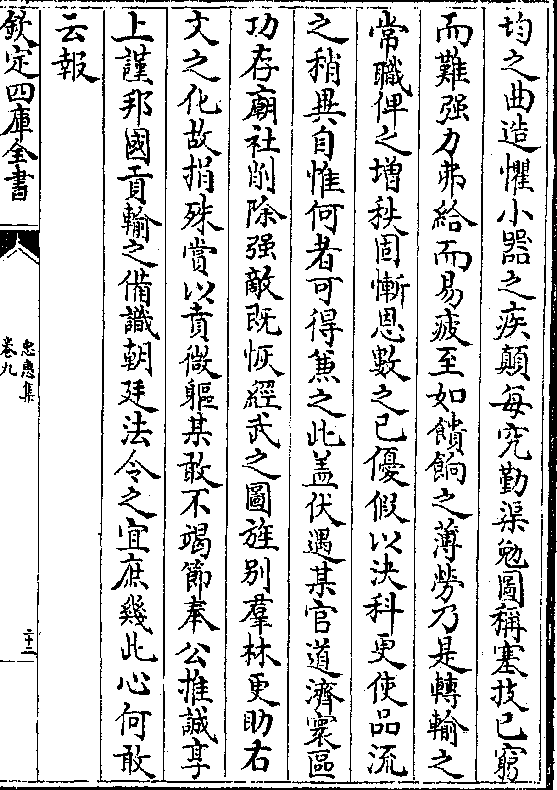 均之曲造懼小器之疾顛每究勤渠勉圖稱塞技已窮
而難强力弗給而易疲至如饋餉之薄勞乃是轉輸之
常職俾之增秩固慚恩數之已優假以決科更使品流
之稍異自惟何者可得兼之此盖伏遇某官道濟寰區
功存廟社削除强敵既恢經武之圖旌别羣材更助右
文之化故捐殊賞以賁微軀某敢不竭節奉公推誠享
上謹邦國貢輸之備識朝廷法令之宜庶幾此心何敢
云報
欽定四庫全書
忠惠集
卷九
二十二